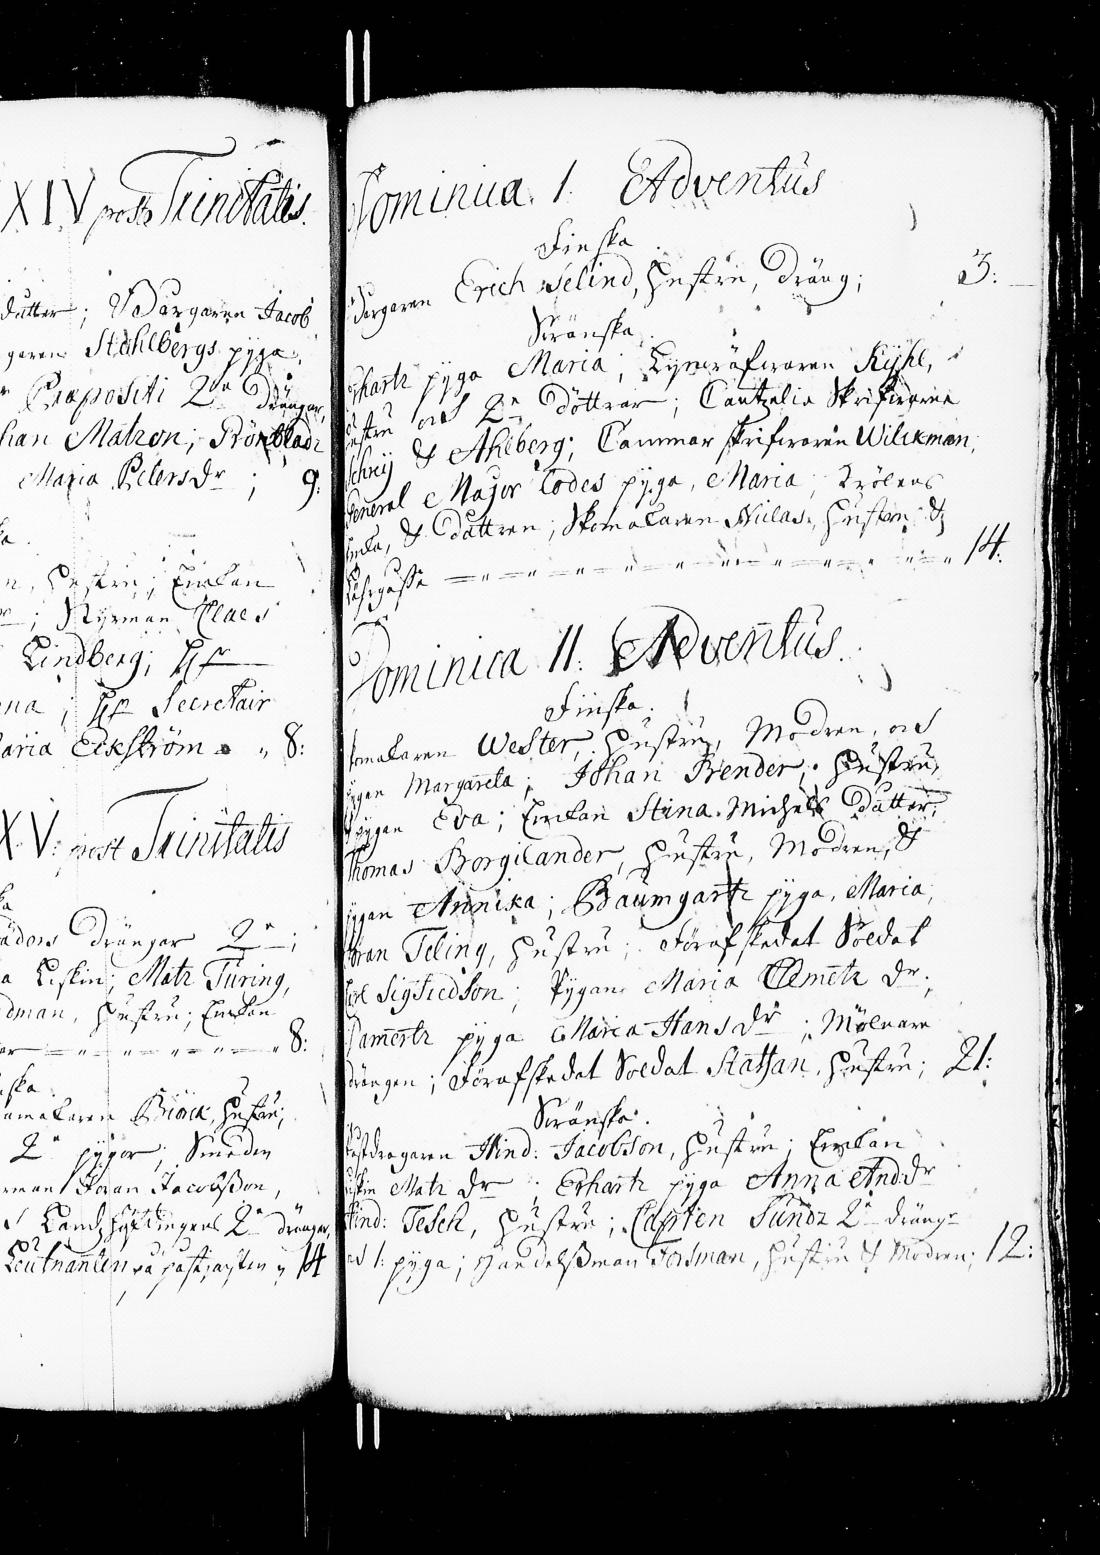 XIV post Trinitatis.
dutter; Borgaren Jacob
garen Ståhlbergs pyga,
Præpositi 2ne drängar,
han Matzon; Brönblads
Maria Pettersdr; 9:
n, hustru; Enkan
; Styrman Claes
Lindberg; Hr
na; Hr Secretair
aria Eckström 8:
XV. post Trinitatis
drängar 2ne;
a Leskin; Matz Turing,
dman, hustru; Enkan
8:
ska
makaren Biörck, hustru;
2ne pygor; Smeden
rman Joran Jacobsson,
Landshöfdingens 2ne drängar,
Leutnanten på 14
Dominica 1. Adventus
Finska.
Borgaren Erich Selind, hustru, dräng; 3:
Swänska.
Erhartz pyga Maria; Kyhl,
hustru och 2ne döttrar; Cantzelie Skrifwarne
& Ahlberg; Cammar skrifwaren Wilckman,
General Major Lodes pyga, Maria;
Enka, & duttren; Skomakaren Niclas, hustru &
14.
Dominica II. Adventus.
Finska.
Skomakaren Wester, hustru, Modren, och
pygan Margareta; Johan Brender, hustru,
& pygan Eva; Enkan Stina Michels dutter;
Thomas Borgilander, hustru, Modren, &
pygan Annika; Baumgartz pyga, Maria,
Göran Teling, hustru; Förafskedat Soldat
Carl Sigfredson; Pygan Maria Clemetz dr;
Lamertz pyga Maria Hans dr; Mölnare
drängen; Förafskedat Soldat Staffan, hustru; 21:
Swänska.
Postdragaren Hind: Jacobson, hustru; Enkan
Matz dr; Erhartz pyga Anna And:dr
Hind: Tesch, hustru; Capten Sundz 2ne dräng
och 1: pyga; Handelsman Forsman, hustru & Modren; 12: